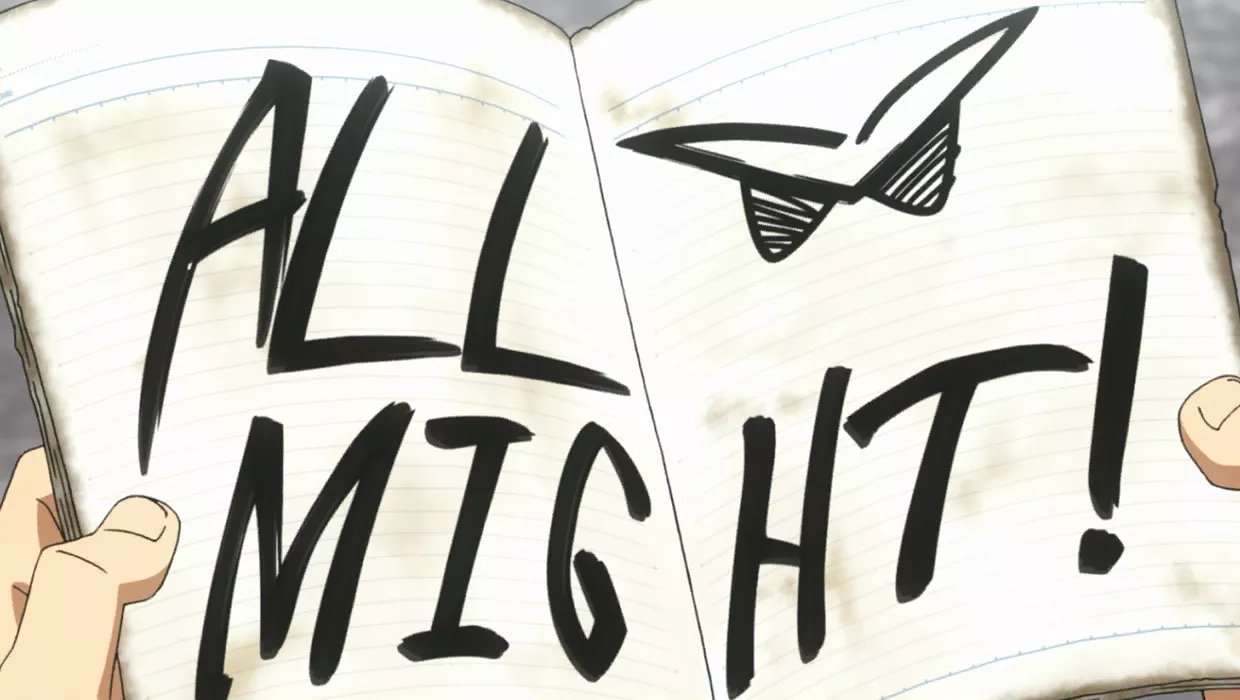 ALL
MIGHT!